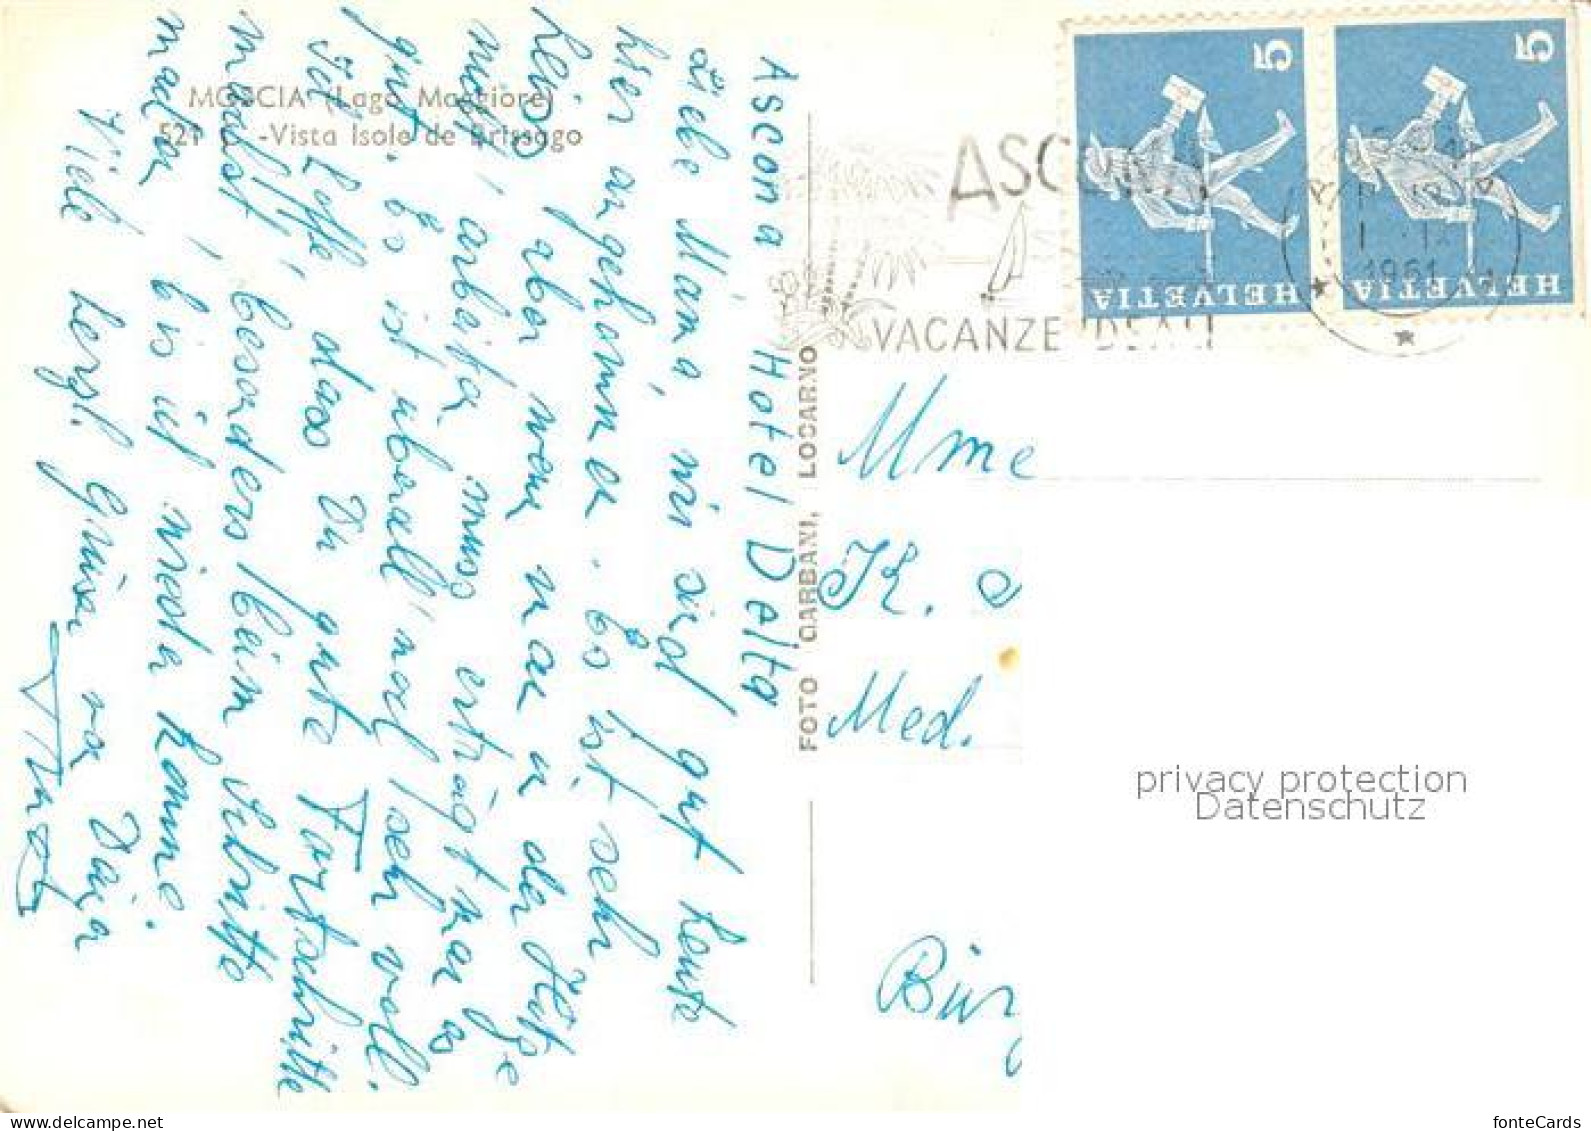 MOSCIA (Lago Maggiore)
521 C -Vista Isole de Brissago
Ascona Hotel Delta
Liebe Mama, wir sind gut heute
hier angekommen. Es ist sehr
heiss aber wenn man in der Hitze
nicht arbeiten muss erträgt man es
gut. Es ist überall noch sehr voll.
Ich hoffe dass Du gute Fortschritte
machst, besonders beim
machen, bis ich wieder komme.
Viele herzl. Grüsse von Deiner
FOTO GARBANI, LOCARNO
ASCONA
VACANZE IDEALI
1961
5
HELVETIA
5
HELVETIA
Mme
K.
Med.
Bürg
privacy protection
Datenschutz
fonteCards